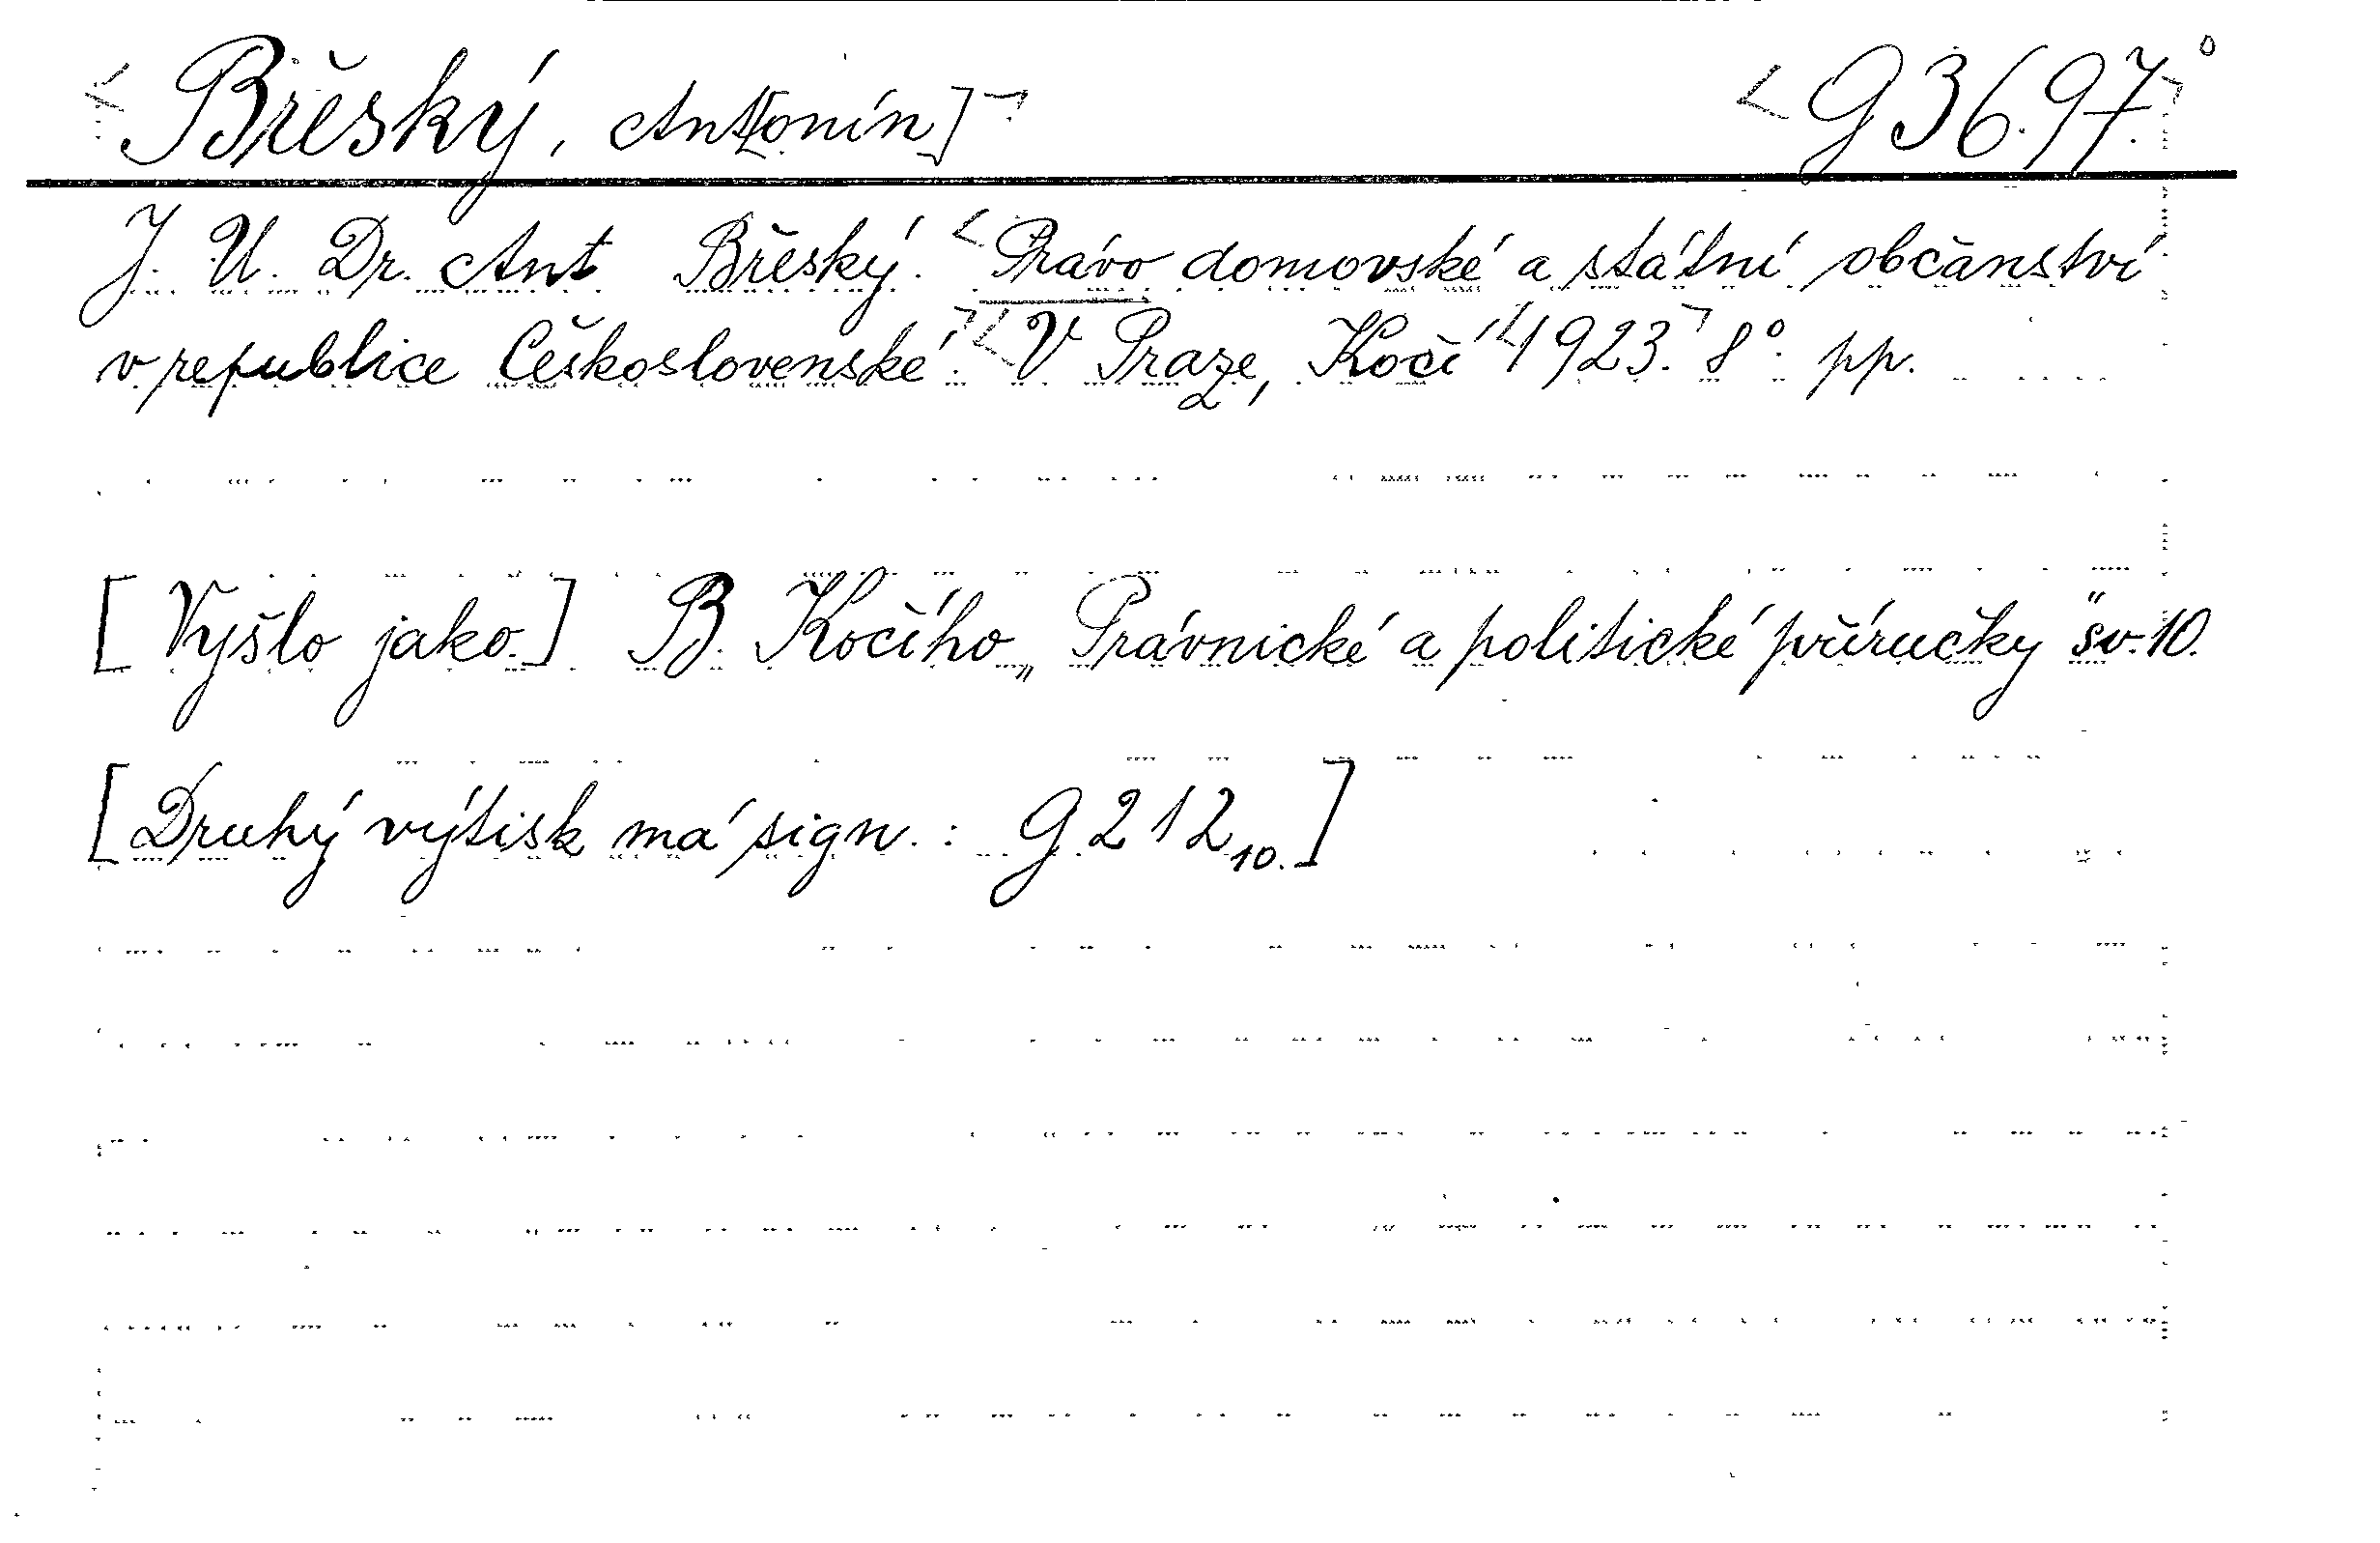 Břeský, Ant[onín] G 36.97.°
J. U. Dr. Ant. Břeský. Právo domovské a státní občanství
v republice Československé. V Praze, Kočí 1923. 8°. pp.
[Vyšlo jako.] B. Kočího „Právnické a politické příručky“ sv. 10.
[Druhý výtisk má sign.: G 212 10.]